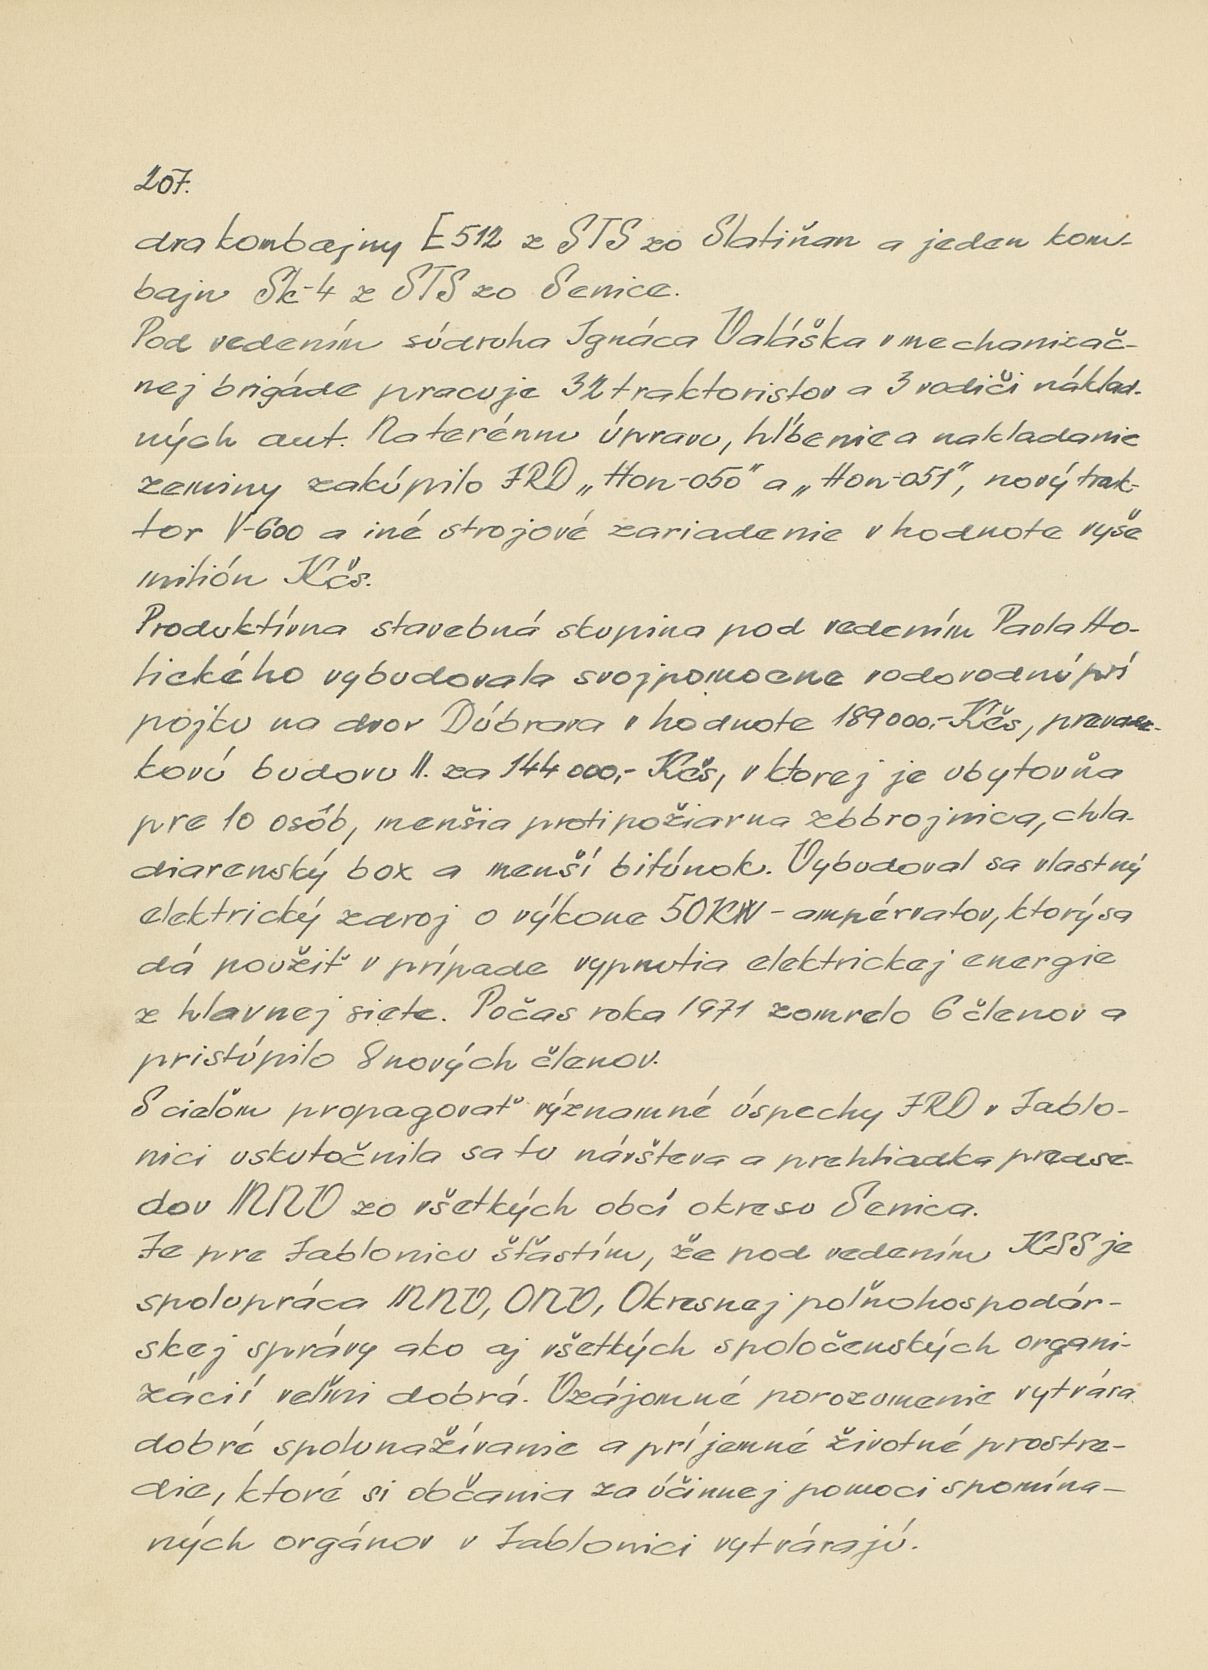 207.
dva kombajny E 512 z STS zo Slatiňan a jeden kom-
bajn Sk-4 z STS zo Senice.
Pod vedením súdruha Ignáca Valáška v mechanizač-
nej brigáde pracuje 32 traktoristov a 3 vodiči náklad-
ných aut. Na terénnu úpravu, hĺbenie a nakladanie
zeminy zakúpilo JRD „Hon-050" a „Hon-051", nový trak-
tor V-600 a iné strojové zariadenie v hodnote vyše
milión Kčs.
Produktívna stavebná skupina pod vedením Pavla Ho-
lického vybudovala svojpomocne vodovodnú prí
pojku na dvor Dúbrava v hodnote 189 000,- Kčs,
kovú budovu II. za 144 000,- Kčs, v ktorej je ubytovňa
pre 10 osôb, menšia protipožiarna zbbrojnica, chla-
diarenský box a menší bitúnok. Vybudoval sa vlastný
elektrický zdroj o výkone 50 KW - ampérvatov, ktorý sa
dá použiť v prípade vypnutia elektrickej energie
z hlavnej siete. Počas roka 1971 zomrelo 6 členov a
pristúpilo 8 nových členov.
S cieľom propagovať významné úspechy JRD v Jablo-
nici uskutočnila sa tu návšteva a prehliadka predse-
dov MNV zo všetkých obcí okresu Senica.
Je pre Jablonicu šťastím, že pod vedením KSS je
spolupráca MNV, ONV, Okresnej poľňohospodár-
skej správy ako aj všetkých spoločenských organi-
zácií veľmi dobrá. Vzájomné porozumenie vytvára
dobré spolunažívanie a príjemné životné prostre-
die, ktoré si občania za účinnej pomoci spomína-
ných orgánov v Jablonici vytvárajú.